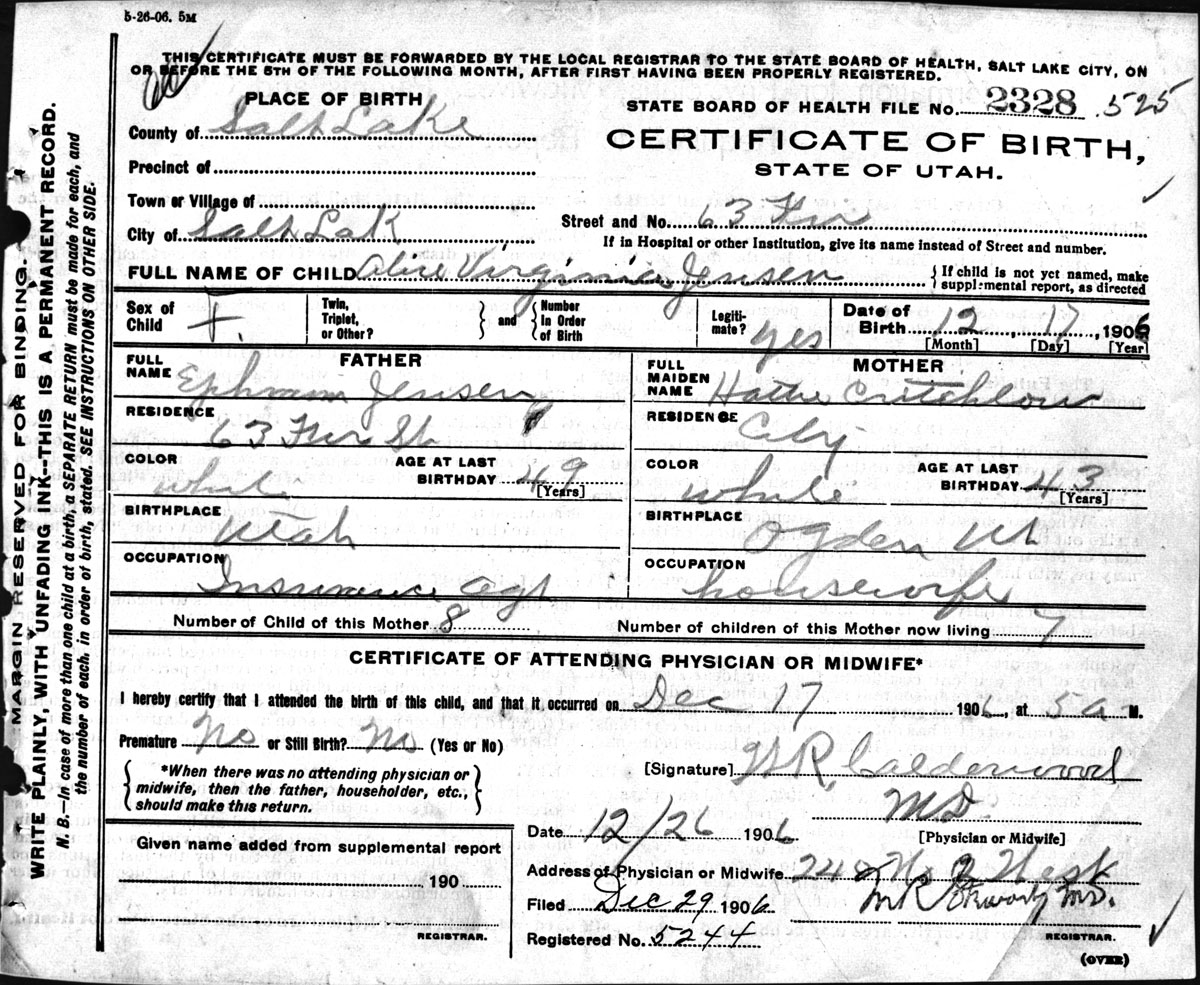 5-26-06. 5M
THIS CERTIFICATE MUST BE FORWARDED BY THE LOCAL REGISTRAR TO THE STATE BOARD OF HEALTH, SALT LAKE CITY, ON
OR BEFORE THE 5TH OF THE FOLLOWING MONTH, AFTER FIRST HAVING BEEN PROPERLY REGISTERED.
MARGIN RESERVED FOR BINDING.
WRITE PLAINLY, WITH UNFADING INK--THIS IS A PERMANENT RECORD.
N. B.--In case of more than one child at a birth, a SEPARATE RETURN must be made for each, and
the number of each, in order of birth, stated. SEE INSTRUCTIONS ON OTHER SIDE.
PLACE OF BIRTH
STATE BOARD OF HEALTH FILE No. 2328 525
County of Salt Lake
CERTIFICATE OF BIRTH,
STATE OF UTAH.
Precinct of
Town or Village of
Street and No. 63
City of Salt Lak
If in Hospital or other Institution, give its name instead of Street and number.
FULL NAME OF CHILD Alice Virginia Jensen
{ If child is not yet named, make
supplemental report, as directed
Sex of Child F.
Twin, Triplet, or Other? } and { Number in Order of Birth
Legitimate? yes
Date of Birth 12, 17, 1906
[Month] [Day] [Year
FATHER
MOTHER
FULL NAME Ephraim Jensen
FULL MAIDEN NAME Hattie Critchlow
RESIDENCE 63 St
RESIDENCE City
COLOR white
AGE AT LAST BIRTHDAY 49 [Years]
COLOR white
AGE AT LAST BIRTHDAY 43 [Years]
BIRTHPLACE Utah
BIRTHPLACE Ogden Ut
OCCUPATION Insurance Agt
OCCUPATION housewife
Number of Child of this Mother 8
Number of children of this Mother now living 7
CERTIFICATE OF ATTENDING PHYSICIAN OR MIDWIFE*
I hereby certify that I attended the birth of this child, and that it occurred on Dec 17 1906, at 5 a M.
Premature No or Still Birth? No (Yes or No)
{ *When there was no attending physician or
midwife, then the father, householder, etc.,
should make this return. }
[Signature] W R Calderwood
M.D.
[Physician or Midwife]
Date 12/26 1906
Given name added from supplemental report
190
REGISTRAR.
Address of Physician or Midwife 248 No 2 West
Filed Dec 29 1906
M R M.D.
Registered No. 5244
REGISTRAR.
(OVER)